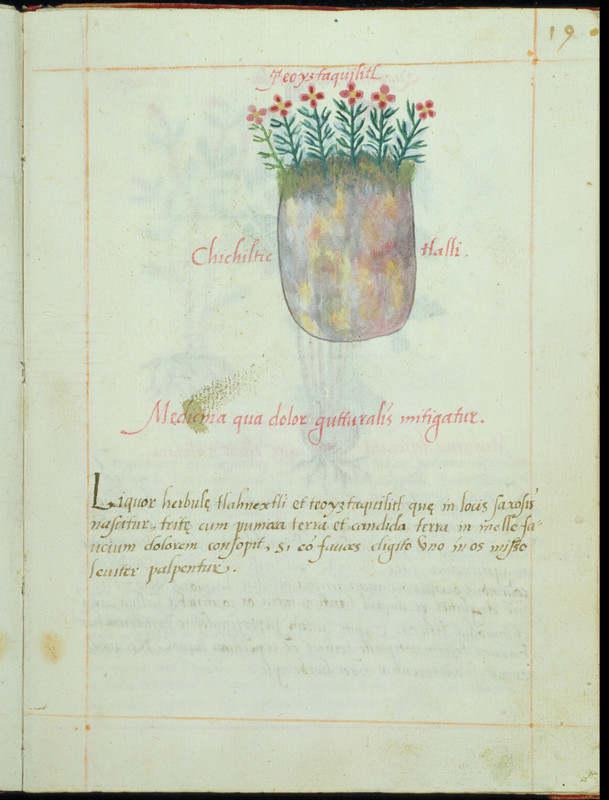 19
Teoyztaquilitl
Chichiltic tlalli.
Medicina qua dolor gutturalis mitigatur.
Liquor herbulę tlahnextli et teoyztaquilitl quę in locis saxosis
nascitur, tritę cum pumicea terra et candida terra in melle fa-
ucium dolorem consopit, si eo fauces digito vno in os misso
leuiter palpentur.